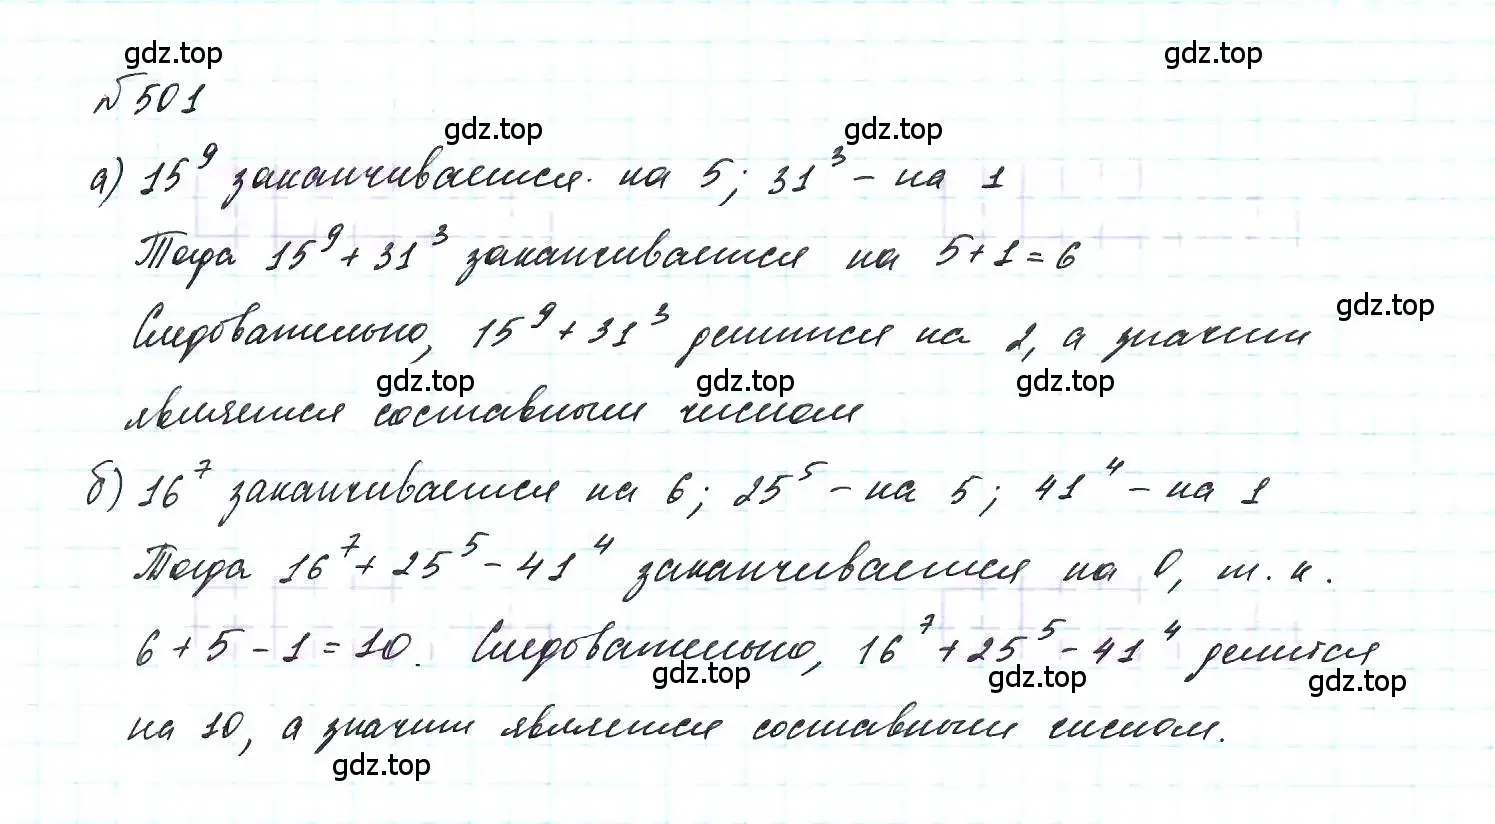 gdz.top gdz.top
№501
gdz.top gdz.top
а) 15⁹ заканчивается на 5; 31³ – на 1
Тогда 15⁹ + 31³ заканчивается на 5 + 1 = 6
gdz.top
Следовательно, 15⁹ + 31³ делится на 2, а значит
gdz.top gdz.top gdz.top
является составным числом
б) 16⁷ заканчивается на 6; 25⁵ – на 5; 41⁴ – на 1
Тогда 16⁷ + 25⁵ – 41⁴ заканчивается на 0, т. к.
6 + 5 – 1 = 10. Следовательно, 16⁷ + 25⁵ – 41⁴ делится
gdz.top gdz.top gdz.top
на 10, а значит является составным числом.
gdz.top